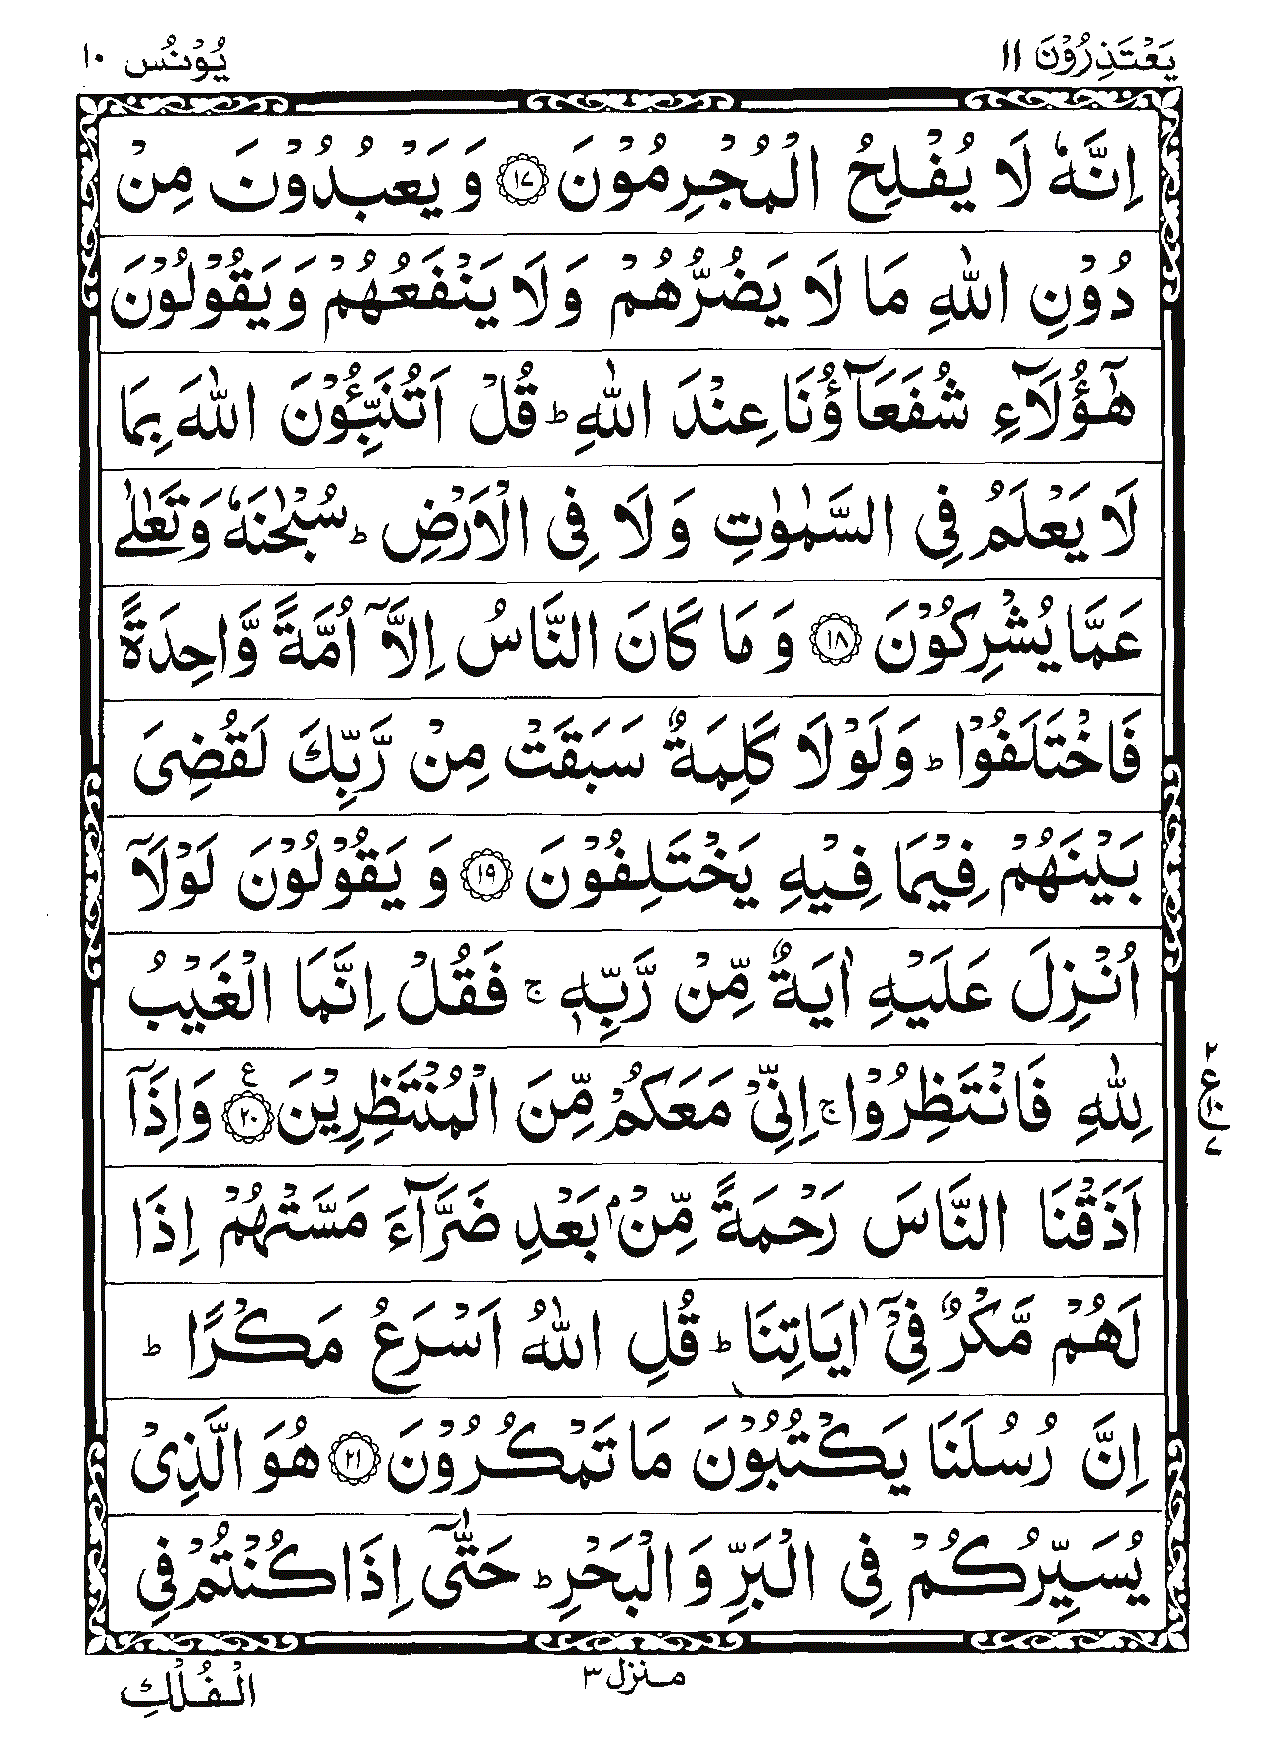 یَعْتَذِرُوْنَ ۱۱
یُوْنُس ۱۰
اِنَّهٗ لَا یُفْلِحُ الْمُجْرِمُوْنَ ۝۱۷ وَ یَعْبُدُوْنَ مِنْ
دُوْنِ اللّٰهِ مَا لَا یَضُرُّهُمْ وَلَا یَنْفَعُهُمْ وَیَقُوْلُوْنَ
هٰۤؤُلَآءِ شُفَعَآؤُنَا عِنْدَ اللّٰهِ ؕ قُلْ اَتُنَبِّـُٔوْنَ اللّٰهَ بِمَا
لَا یَعْلَمُ فِی السَّمٰوٰتِ وَلَا فِی الْاَرْضِ ؕ سُبْحٰنَهٗ وَتَعٰلٰی
عَمَّا یُشْرِكُوْنَ ۝۱۸ وَ مَا كَانَ النَّاسُ اِلَّاۤ اُمَّةً وَّاحِدَةً
فَاخْتَلَفُوْا ؕ وَلَوْلَا كَلِمَةٌ سَبَقَتْ مِنْ رَّبِّكَ لَقُضِیَ
بَیْنَهُمْ فِیْمَا فِیْهِ یَخْتَلِفُوْنَ ۝۱۹ وَ یَقُوْلُوْنَ لَوْلَاۤ
اُنْزِلَ عَلَیْهِ اٰیَةٌ مِّنْ رَّبِّهٖ ۚ فَقُلْ اِنَّمَا الْغَیْبُ
لِلّٰهِ فَانْتَظِرُوْا ۚ اِنِّیْ مَعَكُمْ مِّنَ الْمُنْتَظِرِیْنَ ۝۲۰ ع وَاِذَاۤ
۲ ع ۱۰ ۷
اَذَقْنَا النَّاسَ رَحْمَةً مِّنْۢ بَعْدِ ضَرَّآءَ مَسَّتْهُمْ اِذَا
لَهُمْ مَّكْرٌ فِیْۤ اٰیَاتِنَا ؕ قُلِ اللّٰهُ اَسْرَعُ مَكْرًا ؕ
اِنَّ رُسُلَنَا یَكْتُبُوْنَ مَا تَمْكُرُوْنَ ۝۲۱ هُوَ الَّذِیْ
یُسَیِّرُكُمْ فِی الْبَرِّ وَ الْبَحْرِ ؕ حَتّٰۤی اِذَا كُنْتُمْ فِی
منزل ۳
الْفُلْكِ